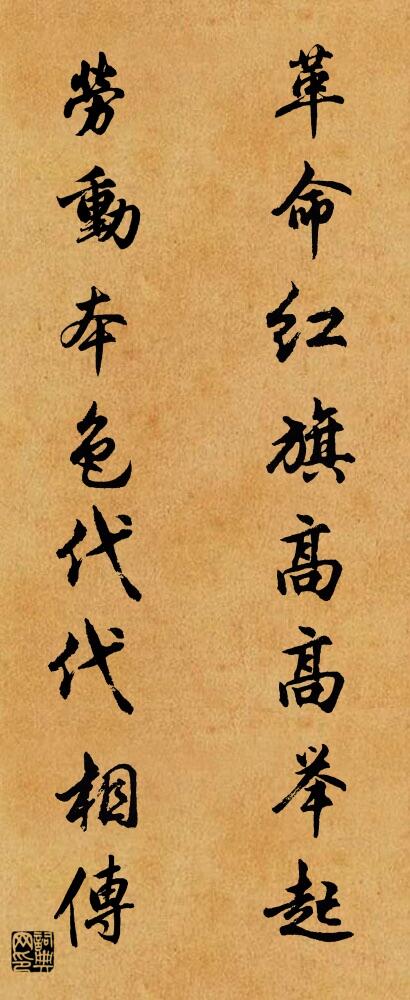 革命红旗高高举起
勞動本色代代相傳
詞典网印